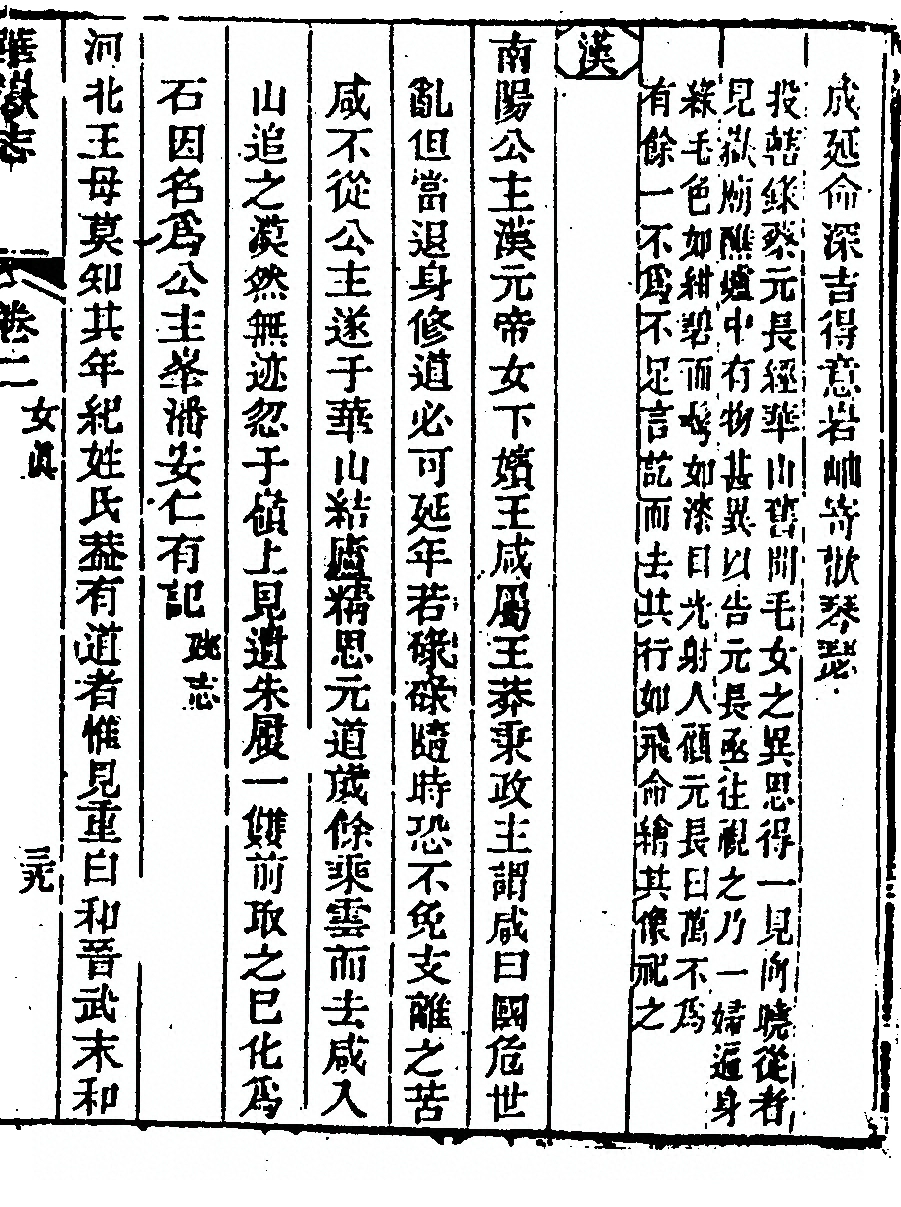 成延命深吉得意岩岫寄傲琴瑟
投轄錄蔡元長經華山舊聞毛女之異思得一見向曉從者
見嶽廟醮爐中有物甚異以告元長亟往視之乃一婦遍身
綠毛色如紺碧而髮如漆目光射人顧元長曰萬不爲
有餘一不爲不足言訖而去其行如飛命繪其像祀之
漢
南陽公主漢元帝女下嬪王咸屬王莽秉政主謂咸曰國危世
亂但當退身修道必可延年若碌碌隨時恐不免支離之苦
咸不從公主遂于華山結廬精思元道歲餘乘雲而去咸入
山追之漠然無迹忽于嶺上見遺朱屐一雙前取之已化爲
石因名爲公主峯潘安仁有記 姚志
河北王母莫知其年紀姓氏葢有道者惟見重白和晉武末和
華嶽志 卷二 女眞 三九